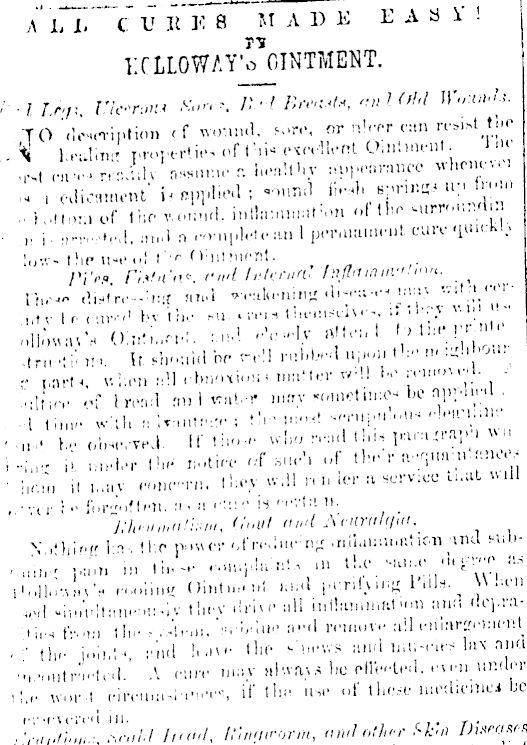 ALL CURES MADE EASY!
BY
HOLLOWAY'S OINTMENT.
Bad Legs, Ulcerous Sores, Bad Breasts, and Old Wounds.
NO description of wound, sore, or ulcer can resist the
healing properties of this excellent Ointment. The
rst cases readily assume a healthy appearance whenever
s medicament is applied; sound flesh springs up from
bottom of the wound, inflammation of the surroundin
n is arrested, and a complete and permanent cure quickly
lows the use of the Ointment.
Piles, Fistulas, and Internal Inflammation.
These distressing and weakening diseases may with cer-
nty be cured by the sufferers themselves, if they will us
olloway's Ointment, and closely attend to the printe
structions. It should be well rubbed upon the neighbour
g parts, when all obnoxious matter will be removed. A
ultice of bread and water may sometimes be applied
d time with advantage; the most scrupulous cleanline
must be observed. If those who read this paragraph wil
bring it under the notice of such of their acquaintances
hom it may concern, they will render a service that will
never be forgotten, as a cure is certain.
Rheumatism, Gout and Neuralgia.
Nothing has the power of reducing inflammation and sub-
duing pain in these complaints in the same degree as
Holloway's cooling Ointment and purifying Pills. When
sed simultaneously they drive all inflammation and depra-
ities from the system, subdue and remove all enlargement
of the joints, and leave the sinews and muscles lax and
uncontracted. A cure may always be effected, even under
the worst circumstances, if the use of these medicines be
ersevered in.
Eruptions, Scald Head, Ringworm, and other Skin Diseases